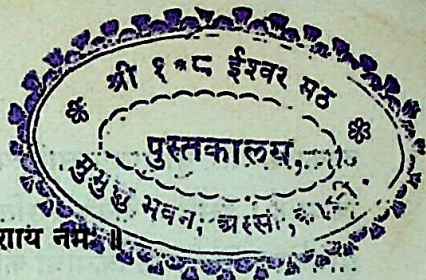 श्री १०८ ईश्वर मठ
पुस्तकालय,
मुमुक्षु भवन, अस्सी,
नमः ॥